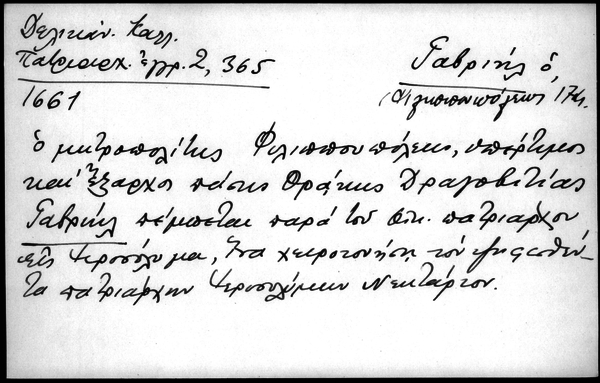 Δελικάν. Καλλ.
Πατριαρχ. ἔγγρ. 2, 365
Γαβριήλ ὁ,
Φιλιππουπόλεως
1661
ὁ μητροπολίτης Φιλιππουπόλεως, ὑπέρτιμος
καί ἔξαρχος πάσης Θράκης Δραγοβιτίας
Γαβριήλ πέμπεται παρά τοῦ οἰκ. πατριάρχου
εἰς Ἱεροσόλυμα, ἵνα χειροτονήσῃ τόν ψηφισθέν-
τα πατριάρχην Ἱεροσολύμων Νεκτάριον.